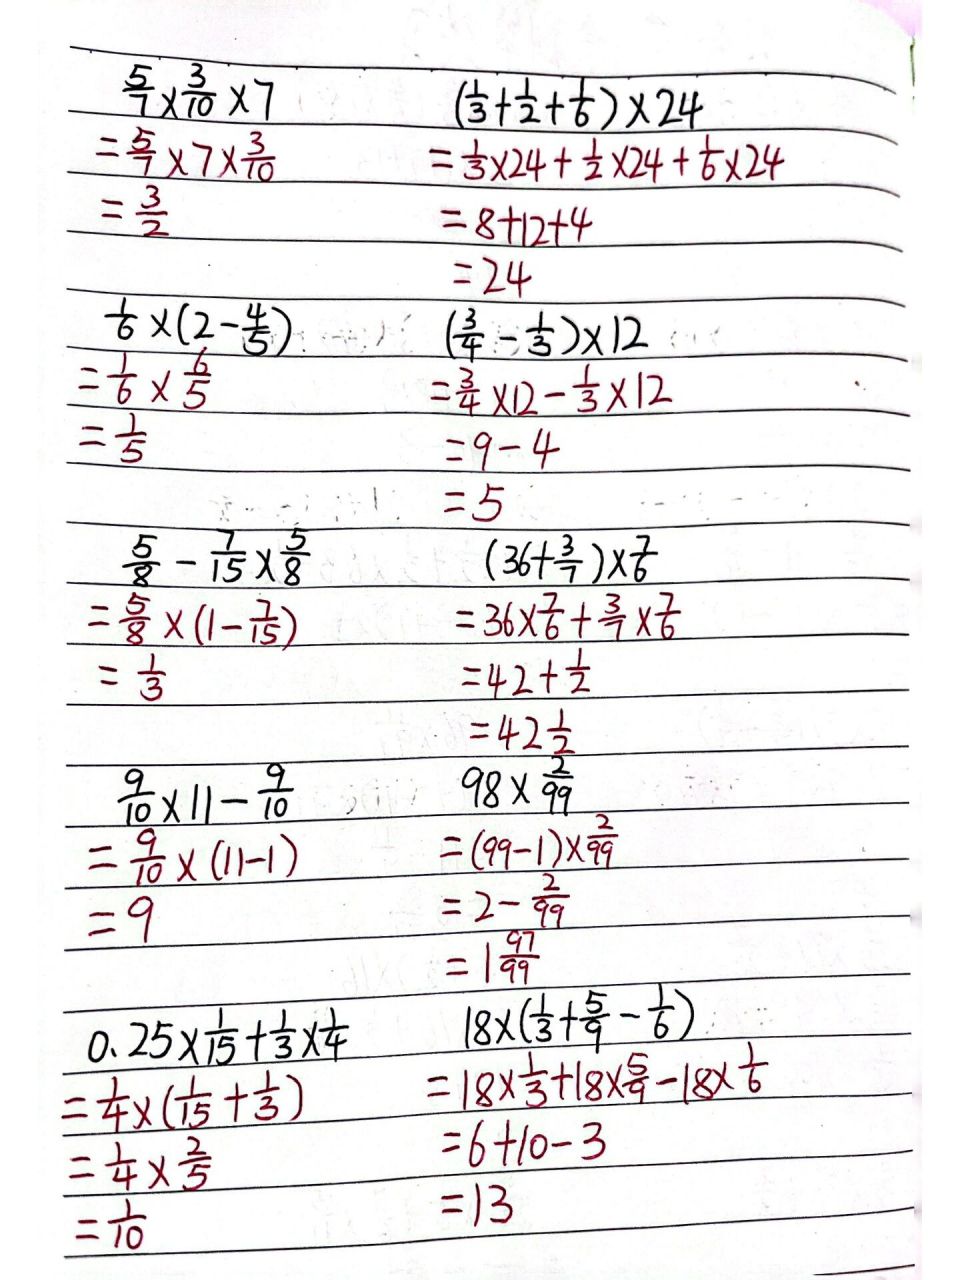 5/7×3/10×7
=5/7×7×3/10
=3/2
(1/3+1/2+1/6)×24
=1/3×24+1/2×24+1/6×24
=8+12+4
=24
1/6×(2-4/5)
=1/6×6/5
=1/5
(3/4-1/3)×12
=3/4×12-1/3×12
=9-4
=5
5/8-7/15×5/8
=5/8×(1-7/15)
=1/3
(36+3/7)×7/6
=36×7/6+3/7×7/6
=42+1/2
=42 1/2
9/10×11-9/10
=9/10×(11-1)
=9
98×2/99
=(99-1)×2/99
=2-2/99
=1 97/99
0.25×1/15+1/3×1/4
=1/4×(1/15+1/3)
=1/4×2/5
=1/10
18×(1/3+5/9-1/6)
=18×1/3+18×5/9-18×1/6
=6+10-3
=13